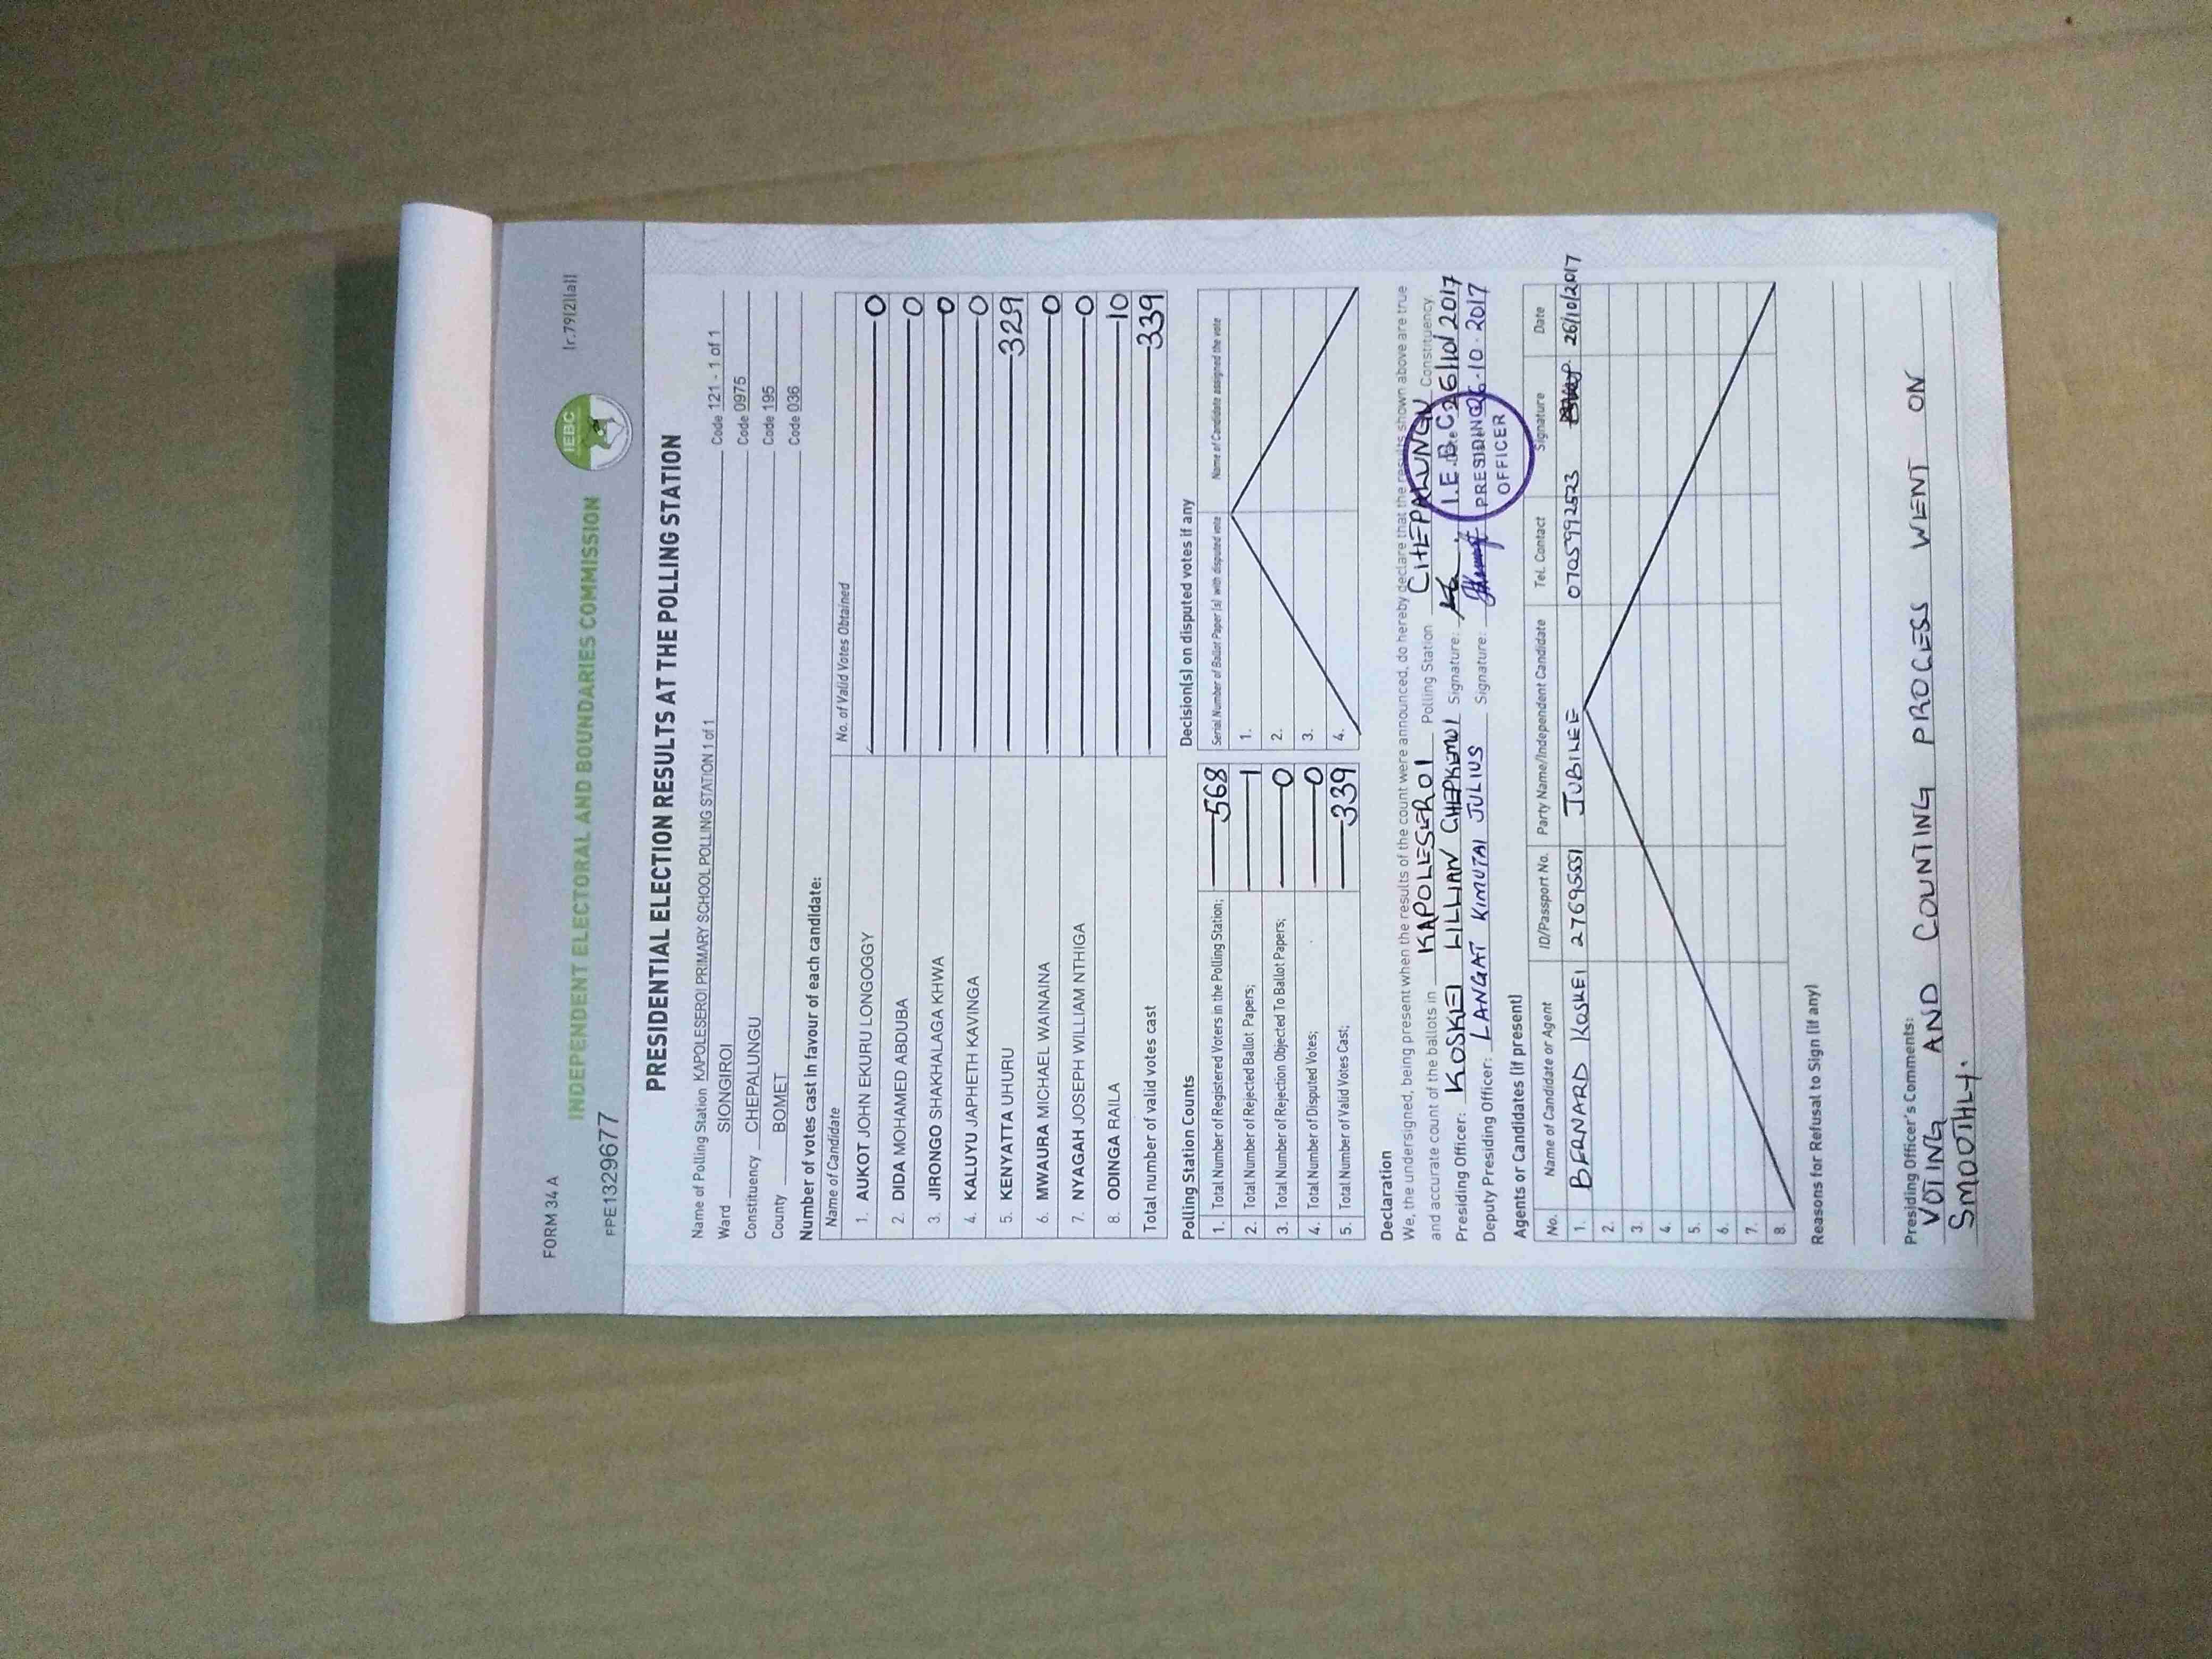 FORM 34 A
INDEPENDENT ELECTORAL AND BOUNDARIES COMMISSION
IEBC
(r.79(2)(a))
FPE1329677
PRESIDENTIAL ELECTION RESULTS AT THE POLLING STATION
Name of Polling Station KAPOLESEROI PRIMARY SCHOOL POLLING STATION 1 of 1 Code 121 - 1 of 1
Ward SIONGIROI Code 0975
Constituency CHEPALUNGU Code 195
County BOMET Code 036
Number of votes cast in favour of each candidate:
Name of Candidate No. of Valid Votes Obtained
1. AUKOT JOHN EKURU LONGOGGY 0
2. DIDA MOHAMED ABDUBA 0
3. JIRONGO SHAKHALAGA KHWA 0
4. KALUYU JAPHETH KAVINGA 0
5. KENYATTA UHURU 329
6. MWAURA MICHAEL WAINAINA 0
7. NYAGAH JOSEPH WILLIAM NTHIGA 0
8. ODINGA RAILA 10
Total number of valid votes cast 339
Polling Station Counts
1. Total Number of Registered Voters in the Polling Station; 568
2. Total Number of Rejected Ballot Papers; 1
3. Total Number of Rejection Objected To Ballot Papers; 0
4. Total Number of Disputed Votes; 0
5. Total Number of Valid Votes Cast; 339
Decision(s) on disputed votes if any
Serial Number of Ballot Paper (s) with disputed vote Name of Candidate assigned the vote
1.
2.
3.
4.
Declaration
We, the undersigned, being present when the results of the count were announced, do hereby declare that the results shown above are true
and accurate count of the ballots in KAPOLLESEROI Polling Station CHEPALUNGU Constituency.
Presiding Officer: KOSKEI LILLIAN CHEPKEMOI Signature: 26/10/2017
Deputy Presiding Officer: LANGAT KIMUTAI JULIUS Signature: 26-10-2017
I.E.B.C
PRESIDING
OFFICER
Agents or Candidates (if present)
No. Name of Candidate or Agent ID/Passport No. Party Name/Independent Candidate Tel. Contact Signature Date
1. BERNARD KOSKEI 27695551 JUBILEE 0705992523 26/10/2017
2.
3.
4.
5.
6.
7.
8.
Reasons for Refusal to Sign (if any)
Presiding Officer's Comments:
VOTING AND COUNTING PROCESS WENT ON
SMOOTHLY.